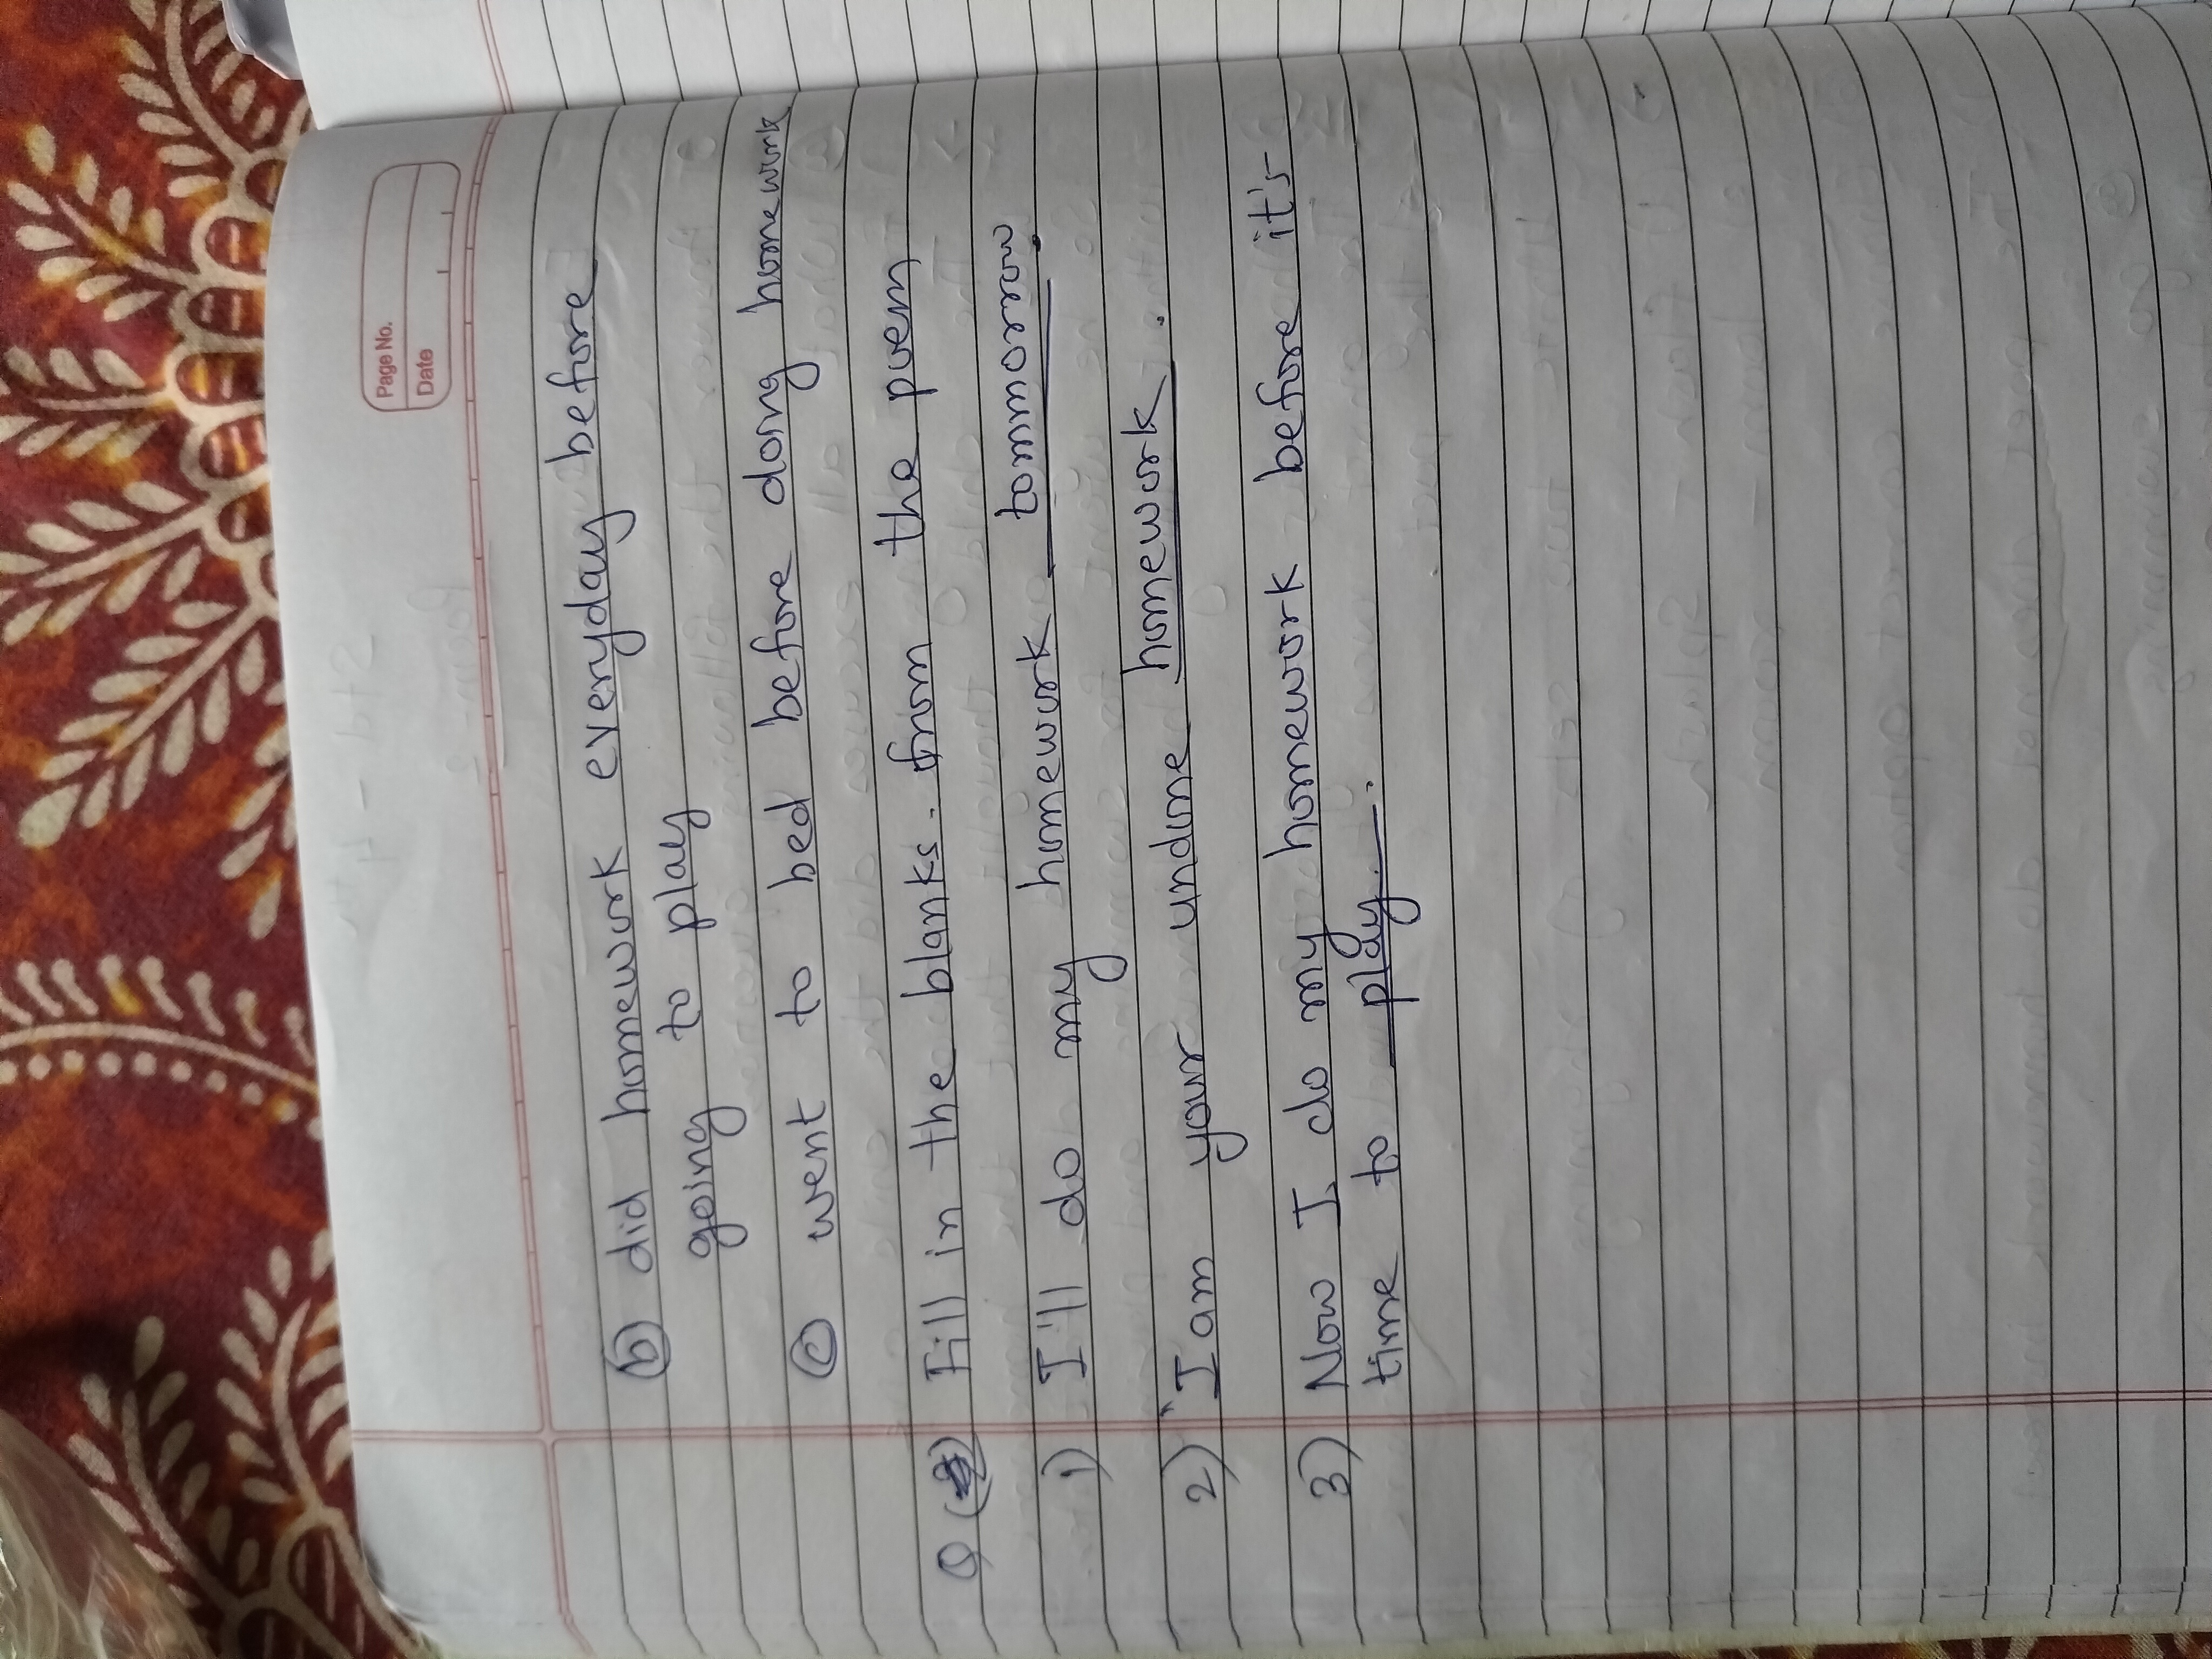 Page No.
Date
(b) did homework everyday before
going to play
(c) went to bed before doing homework
Q Fill in the blanks. from the poem
1) I'll do my homework tommorrow.
2) "I am your undone homework.
3) Now I do my homework before it's
time to play.